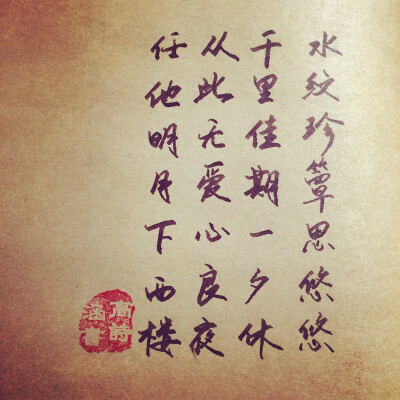 水纹珍簟思悠悠
千里佳期一夕休
从此无爱心良夜
任他明月下西楼